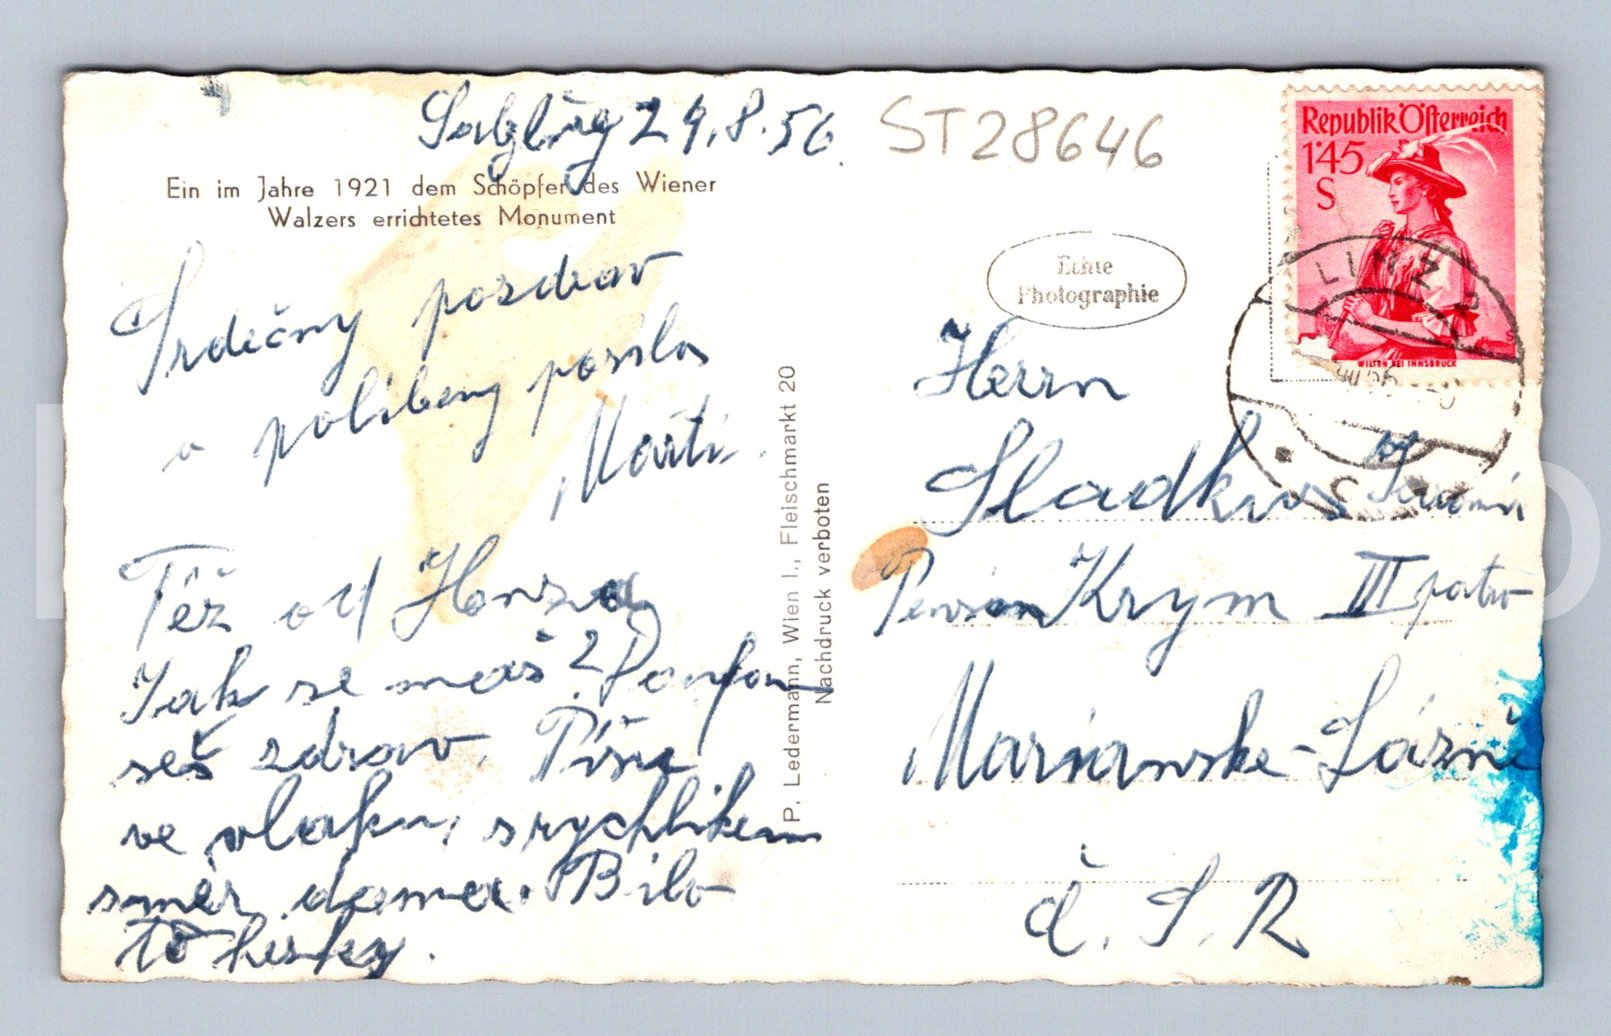 Salzburg 29.8.56.
ST28646
Ein im Jahre 1921 dem Schöpfer des Wiener
Walzers errichtetes Monument
Srdečný pozdrav
a políbený posila
Marti.
Též od Honza
Jak se maš? Doufam
seš zdrav. Píšu
ve vlaku, s rychlikem
směr doma. Bilo
to hezky.
P. Ledermann, Wien I., Fleischmarkt 20
Nachdruck verboten
Echte
Photographie
Republik Österreich
1'45
S
WILTEN BEI INNSBRUCK
LINZ 2
Herrn
Sladkus
Pension Krym III patro
Marianske-Lázně
Č.S.R